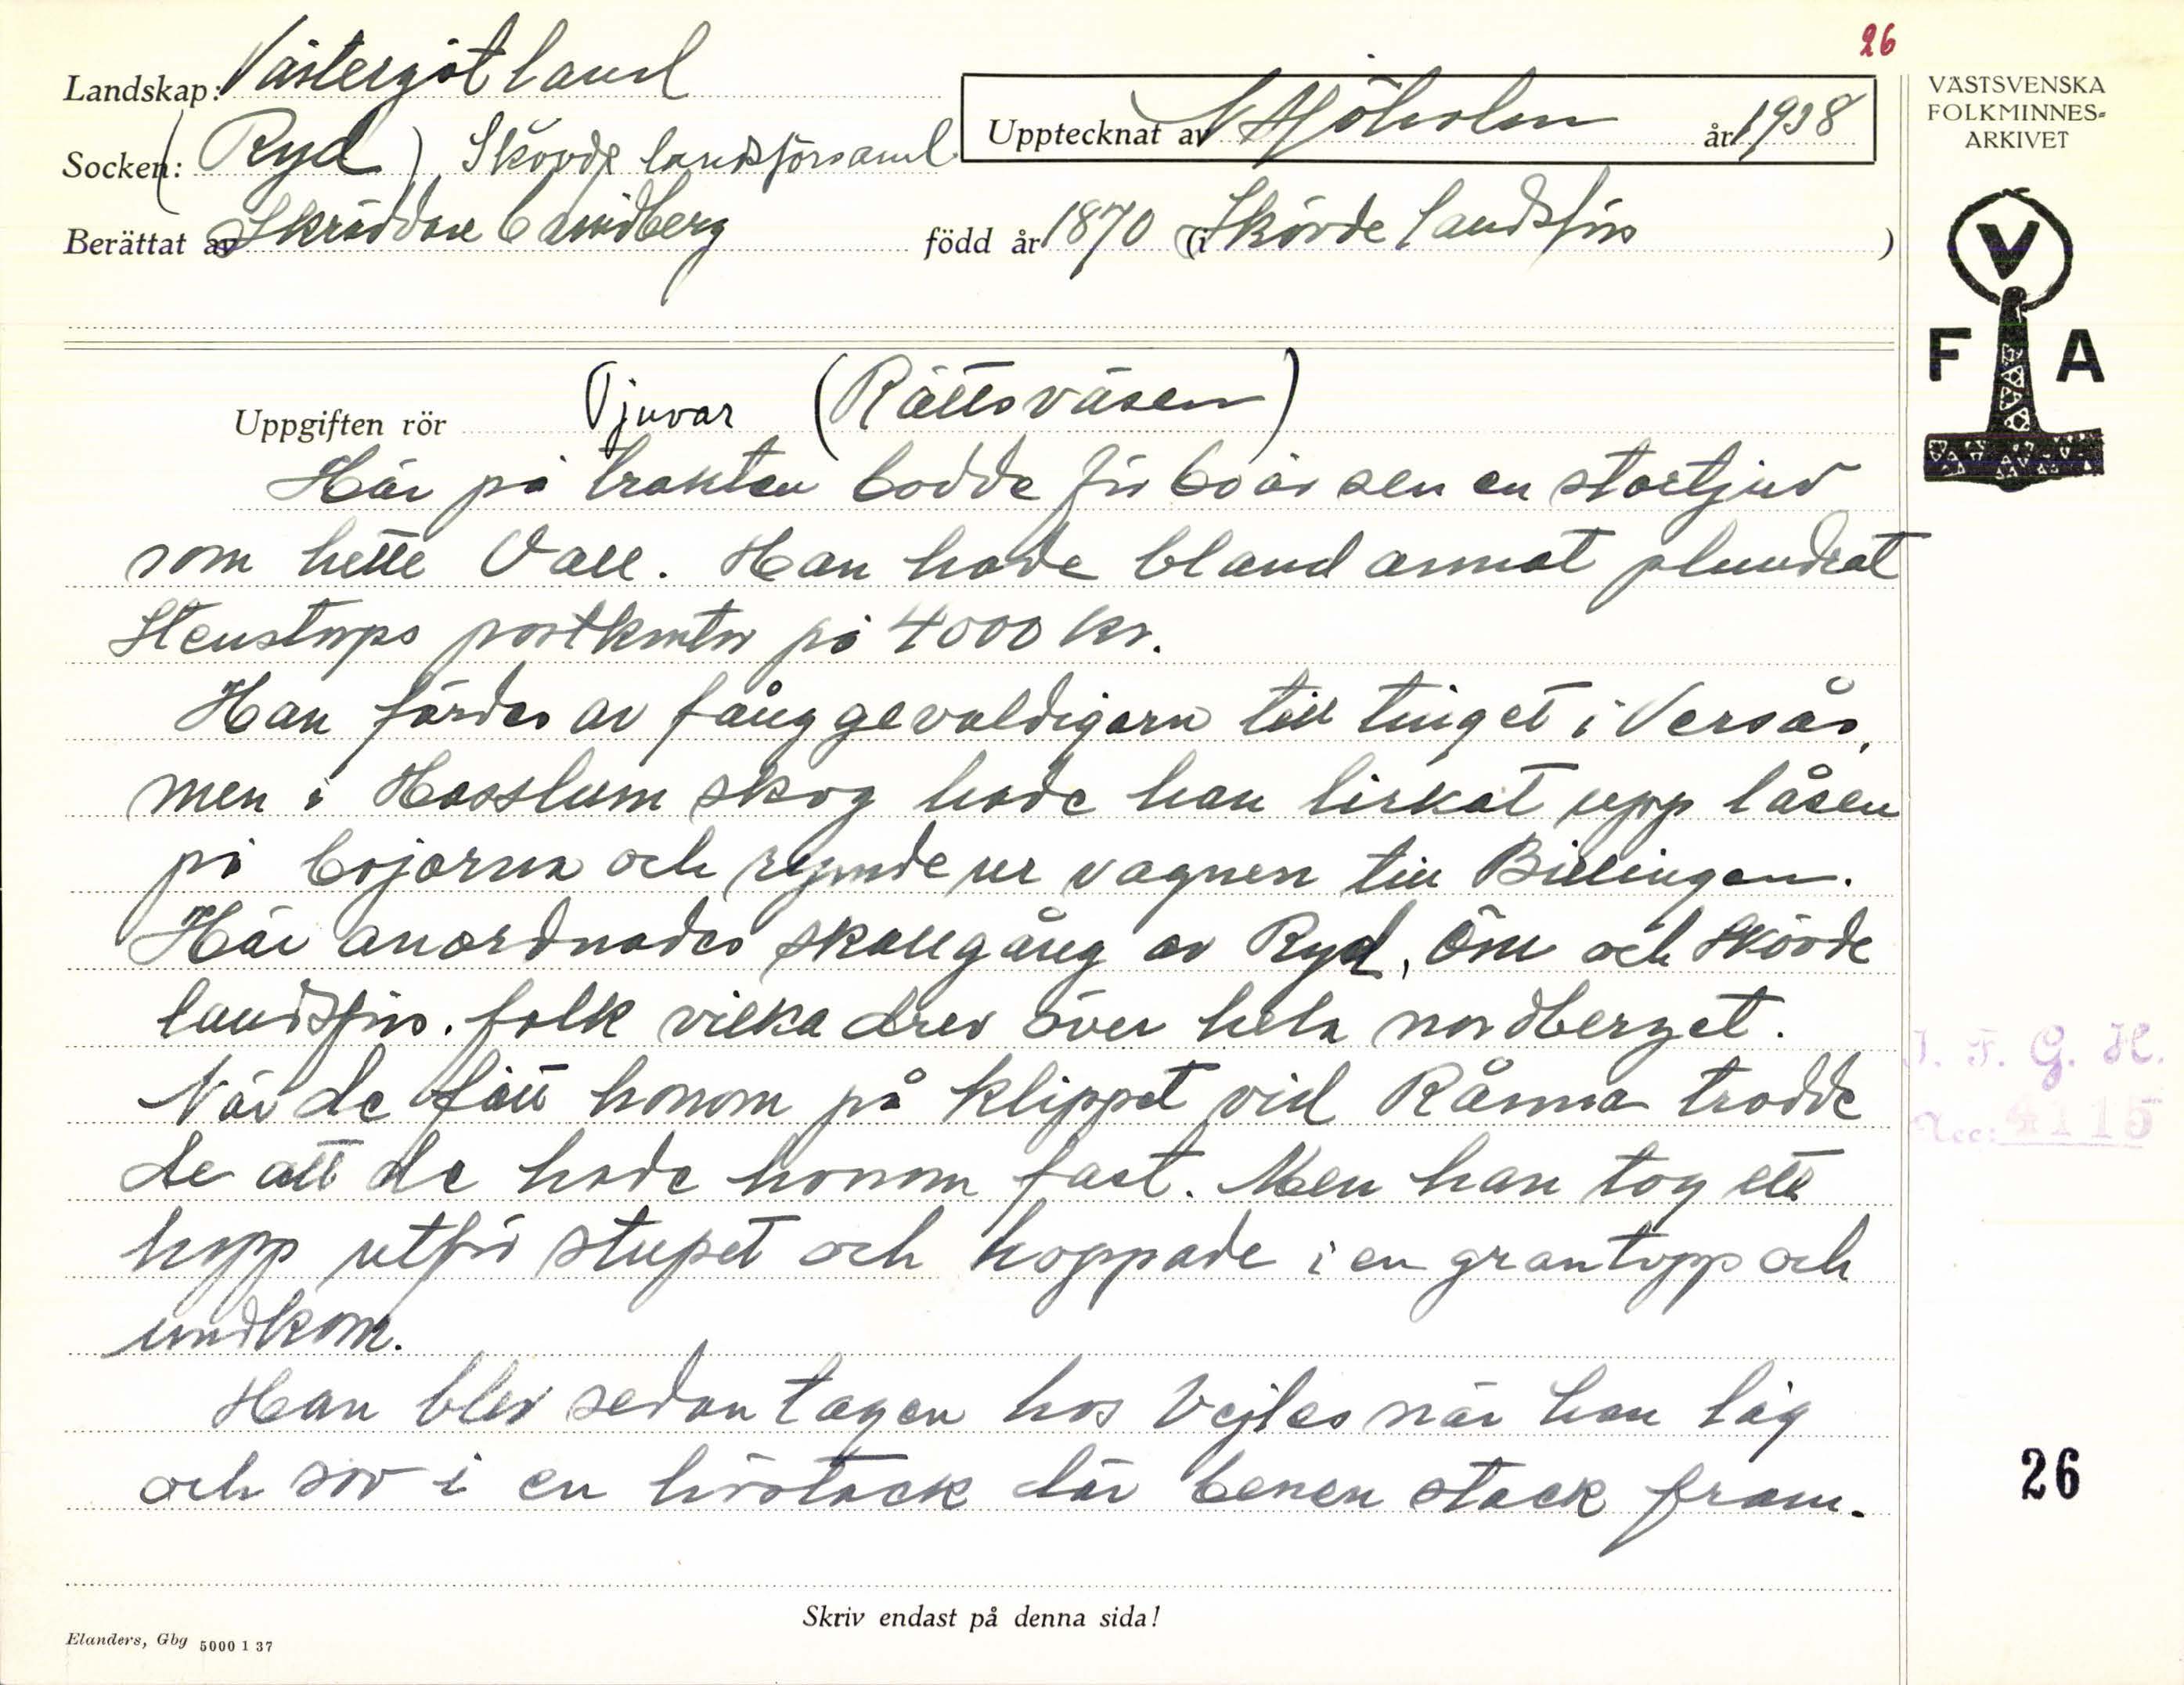 26
Landskap: Västergötland
Upptecknat av N Mjöholm år 1938
Socken: (Ryd) Skövde landsförsaml
Berättat av Skräddare Landberg född år 1870 (i Skövde landsförs )
VÄSTSVENSKA
FOLKMINNES-
ARKIVET
V
F A
Uppgiften rör Tjuvar (Rättsväsen)
Här på trakten bodde för 60 år sen en stortjuv
som hette Vall. Han hade bland annat plundrat
Stenstorps postkontor på 4000 kr.
Han fördes av fånggevaldigarn till tinget i Versås,
men i Hasslum skog hade han lirkat upp låsen
på bojorna och rymde ur vagnen till Billingen.
Här anordnades skallgång av Ryd, Öm och Skövde
landsförs. folk vilka drev över hela nordberget.
När de fått honom på klippet vid Rånna trodde
de att de hade honom fast. Men han tog ett
hopp utför stupet och hoppade i en grantopp och
undkom.
Han blev sedan tagen hos Vejles när han låg
och sov i en höstack där benen stack fram.
I. F. G. H.
Acc: 4115
26
Skriv endast på denna sida!
Elanders, Gbg 5000 1 37